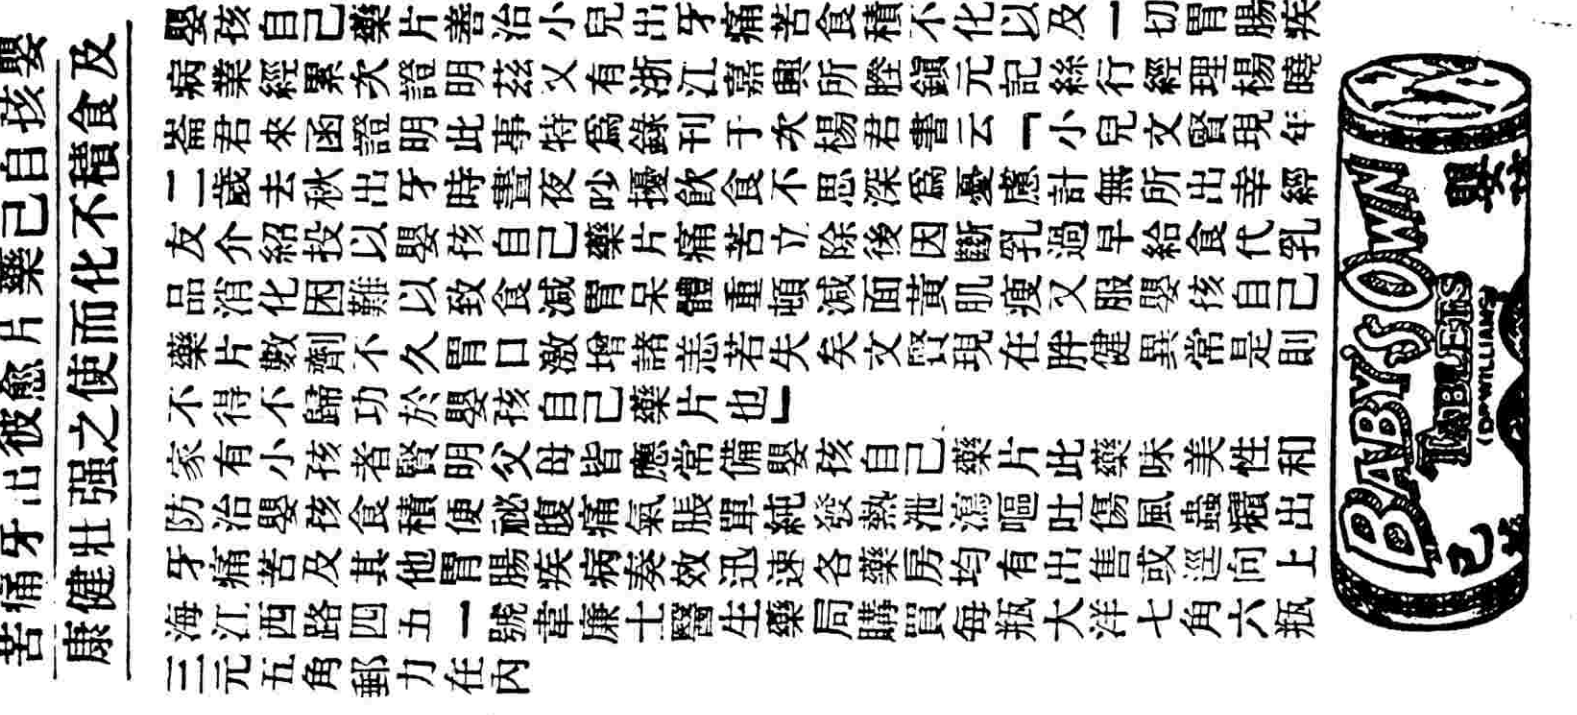 嬰孩自己藥片愈彼出牙痛苦
及食積不化而使之强壯健康
嬰孩自己藥片善治小兒出牙痛苦食積不化以及一切胃腸疾
病業經累次證明茲又有浙江嘉興所塍鎭元記絲行經理楊曉
崙君來函證明此事特爲錄刊于次楊君書云「小兒文賢現年
二歲去秋出牙時晝夜吵擾飮食不思深爲憂慮計無所出幸經
友介紹投以嬰孩自己藥片痛苦立除後因斷乳過早給食代乳
品消化困難以致食減胃呆體重頓減面黃肌瘦又服嬰孩自己
藥片數劑不久胃口激增諸恙若失矣文賢現在胖健異常是則
不得不歸功於嬰孩自己藥片也」
家有小孩者賢明父母皆應常備嬰孩自己藥片此藥味美性和
防治嬰孩食積便祕腹痛氣脹單純發熱泄瀉嘔吐傷風蟲癪出
牙痛苦及其他胃腸疾病奏效迅速各藥房均有出售或逕向上
海江西路四五一號韋廉士醫生藥局購買每瓶大洋七角六瓶
三元五角郵力在內
嬰孩
BABY'S OWN
TABLETS
(DR WILLIAMS)
己